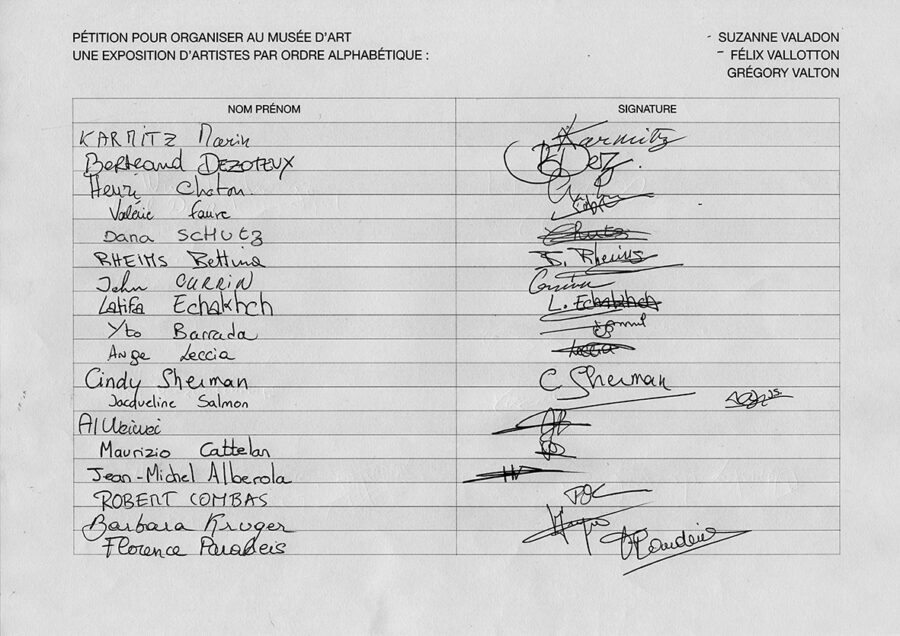 PÉTITION POUR ORGANISER AU MUSÉE D'ART
UNE EXPOSITION D'ARTISTES PAR ORDRE ALPHABÉTIQUE :
- SUZANNE VALADON
- FÉLIX VALLOTTON
GRÉGORY VALTON
NOM PRÉNOM SIGNATURE
KARMITZ Marin Karmitz
Bertrand DEZOTEUX
Henri Chaton.
Valérie faure
Dana SCHUTZ Schutz
RHEIMS Bettina B. Rheims
John CURRIN
Latifa Echakhch L. Echakhch
Yto Barrada
Ange Leccia Leccia
Cindy Sherman C Sherman
Jacqueline Salmon
Ai Weiwei
Maurizio Cattelan
Jean-Michel Alberola
ROBERT COMBAS
Barbara Kruger
Florence Paradeis